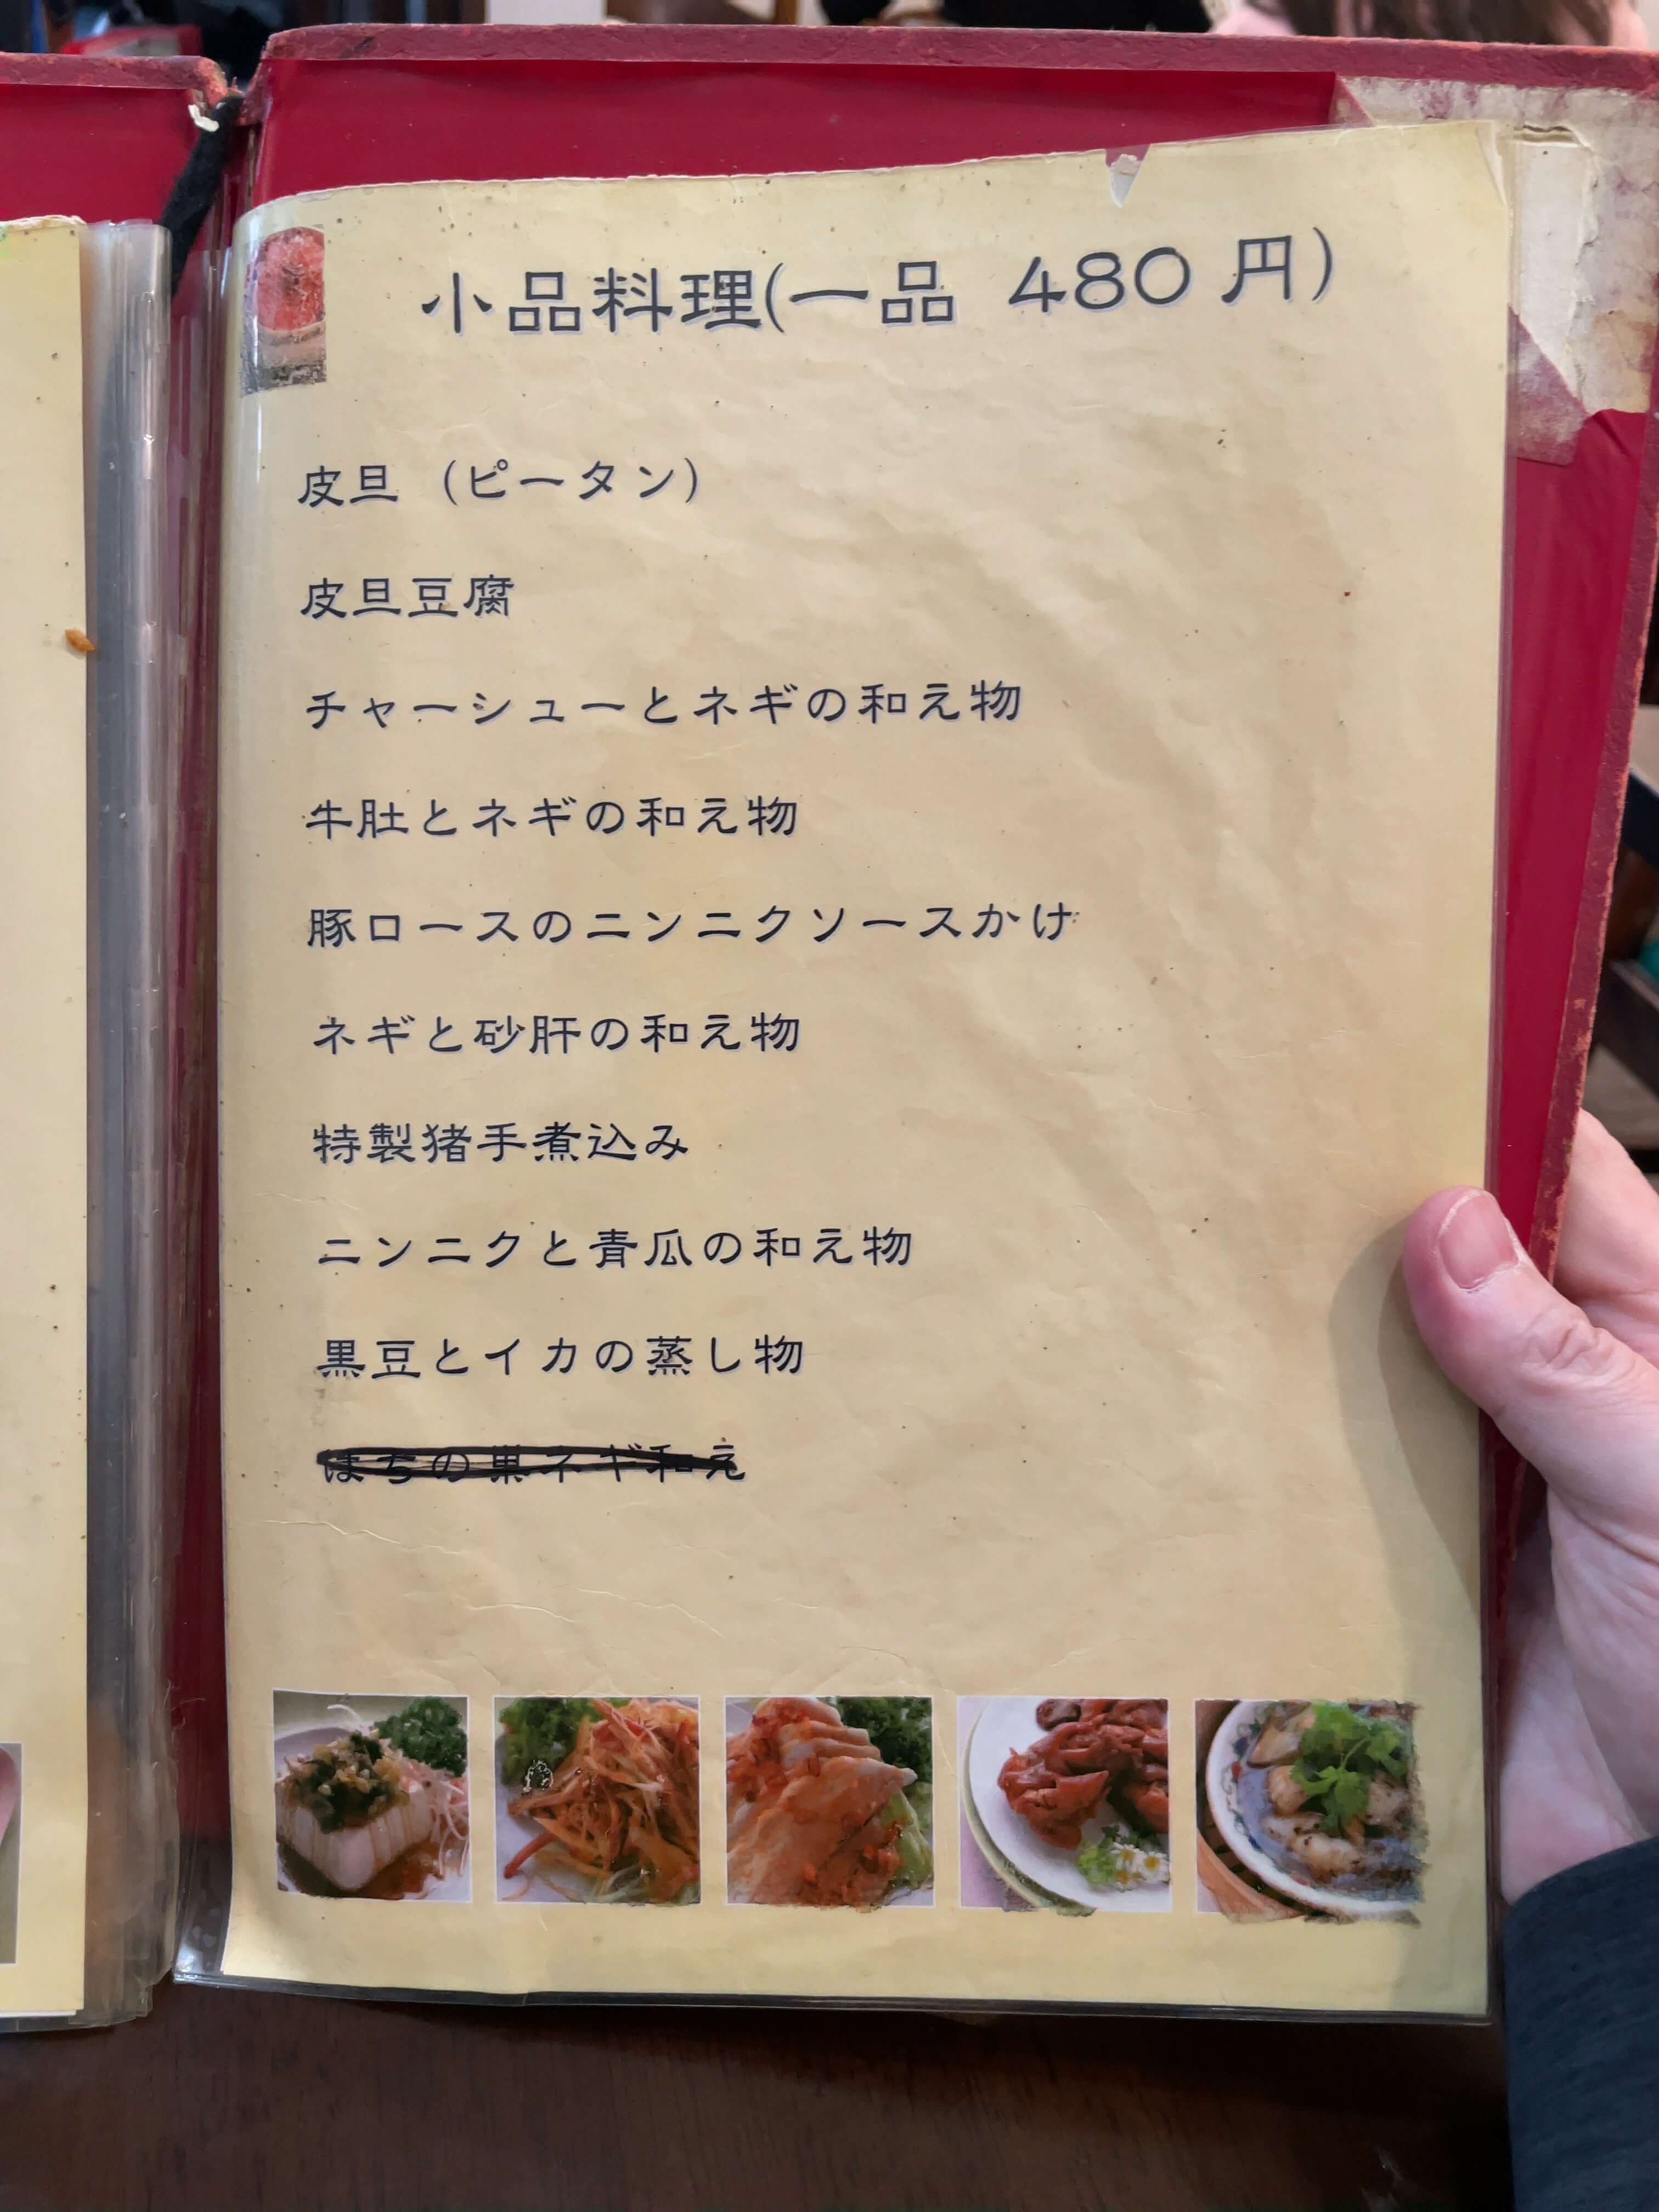 小品料理(一品 480 円)
皮旦 (ピータン)
皮旦豆腐
チャーシューとネギの和え物
牛肚とネギの和え物
豚ロースのニンニクソースかけ
ネギと砂肝の和え物
特製猪手煮込み
ニンニクと青瓜の和え物
黒豆とイカの蒸し物
はちの巣ネギ和え